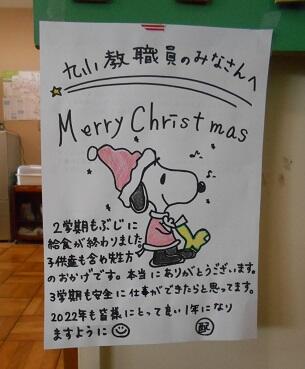 九小教職員のみなさんへ
Merry Christmas
2学期もぶじに
給食が終わりました
子供達も含め先生方
のおかげです。本当にありがとうございます。
3学期も安全に仕事ができたらと思ってます。
2022年も皆様にとって良い1年になり
ますように
配